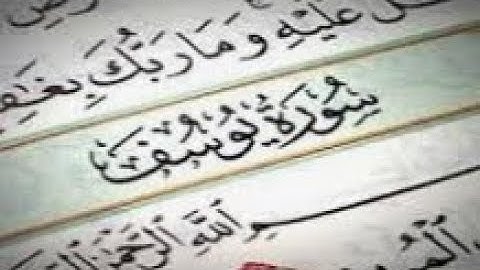 عَلَيْهِ وَمَا رَبُّكَ
سُورَةُ يُوسُفَ
ٱللَّهِ ٱلرَّحْمَٰنِ